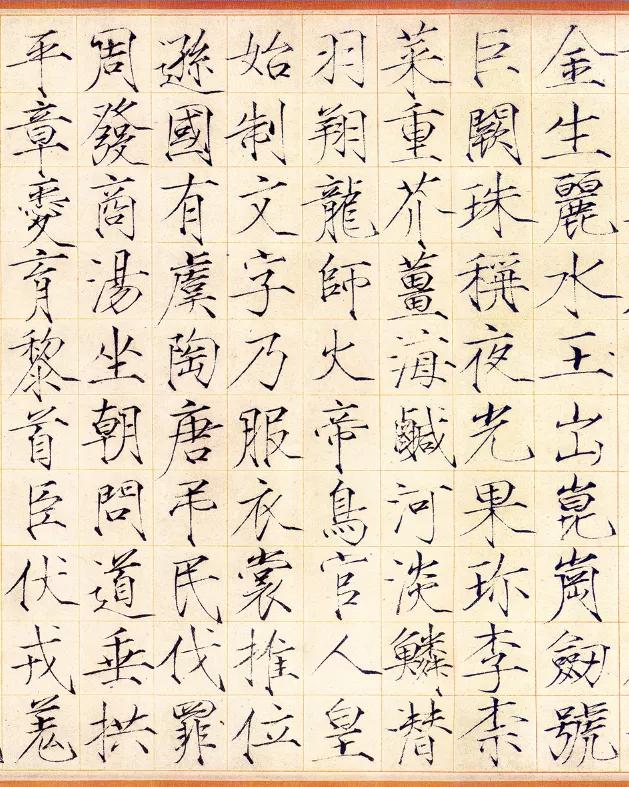 金生麗水玉出崑崗劒號
巨闕珠稱夜光果珎李柰
菜重芥薑海鹹河淡鱗潛
羽翔龍師火帝鳥官人皇
始制文字乃服衣裳推位
遜國有虞陶唐弔民伐罪
周發商湯坐朝問道垂拱
平章愛育黎首臣伏戎羌